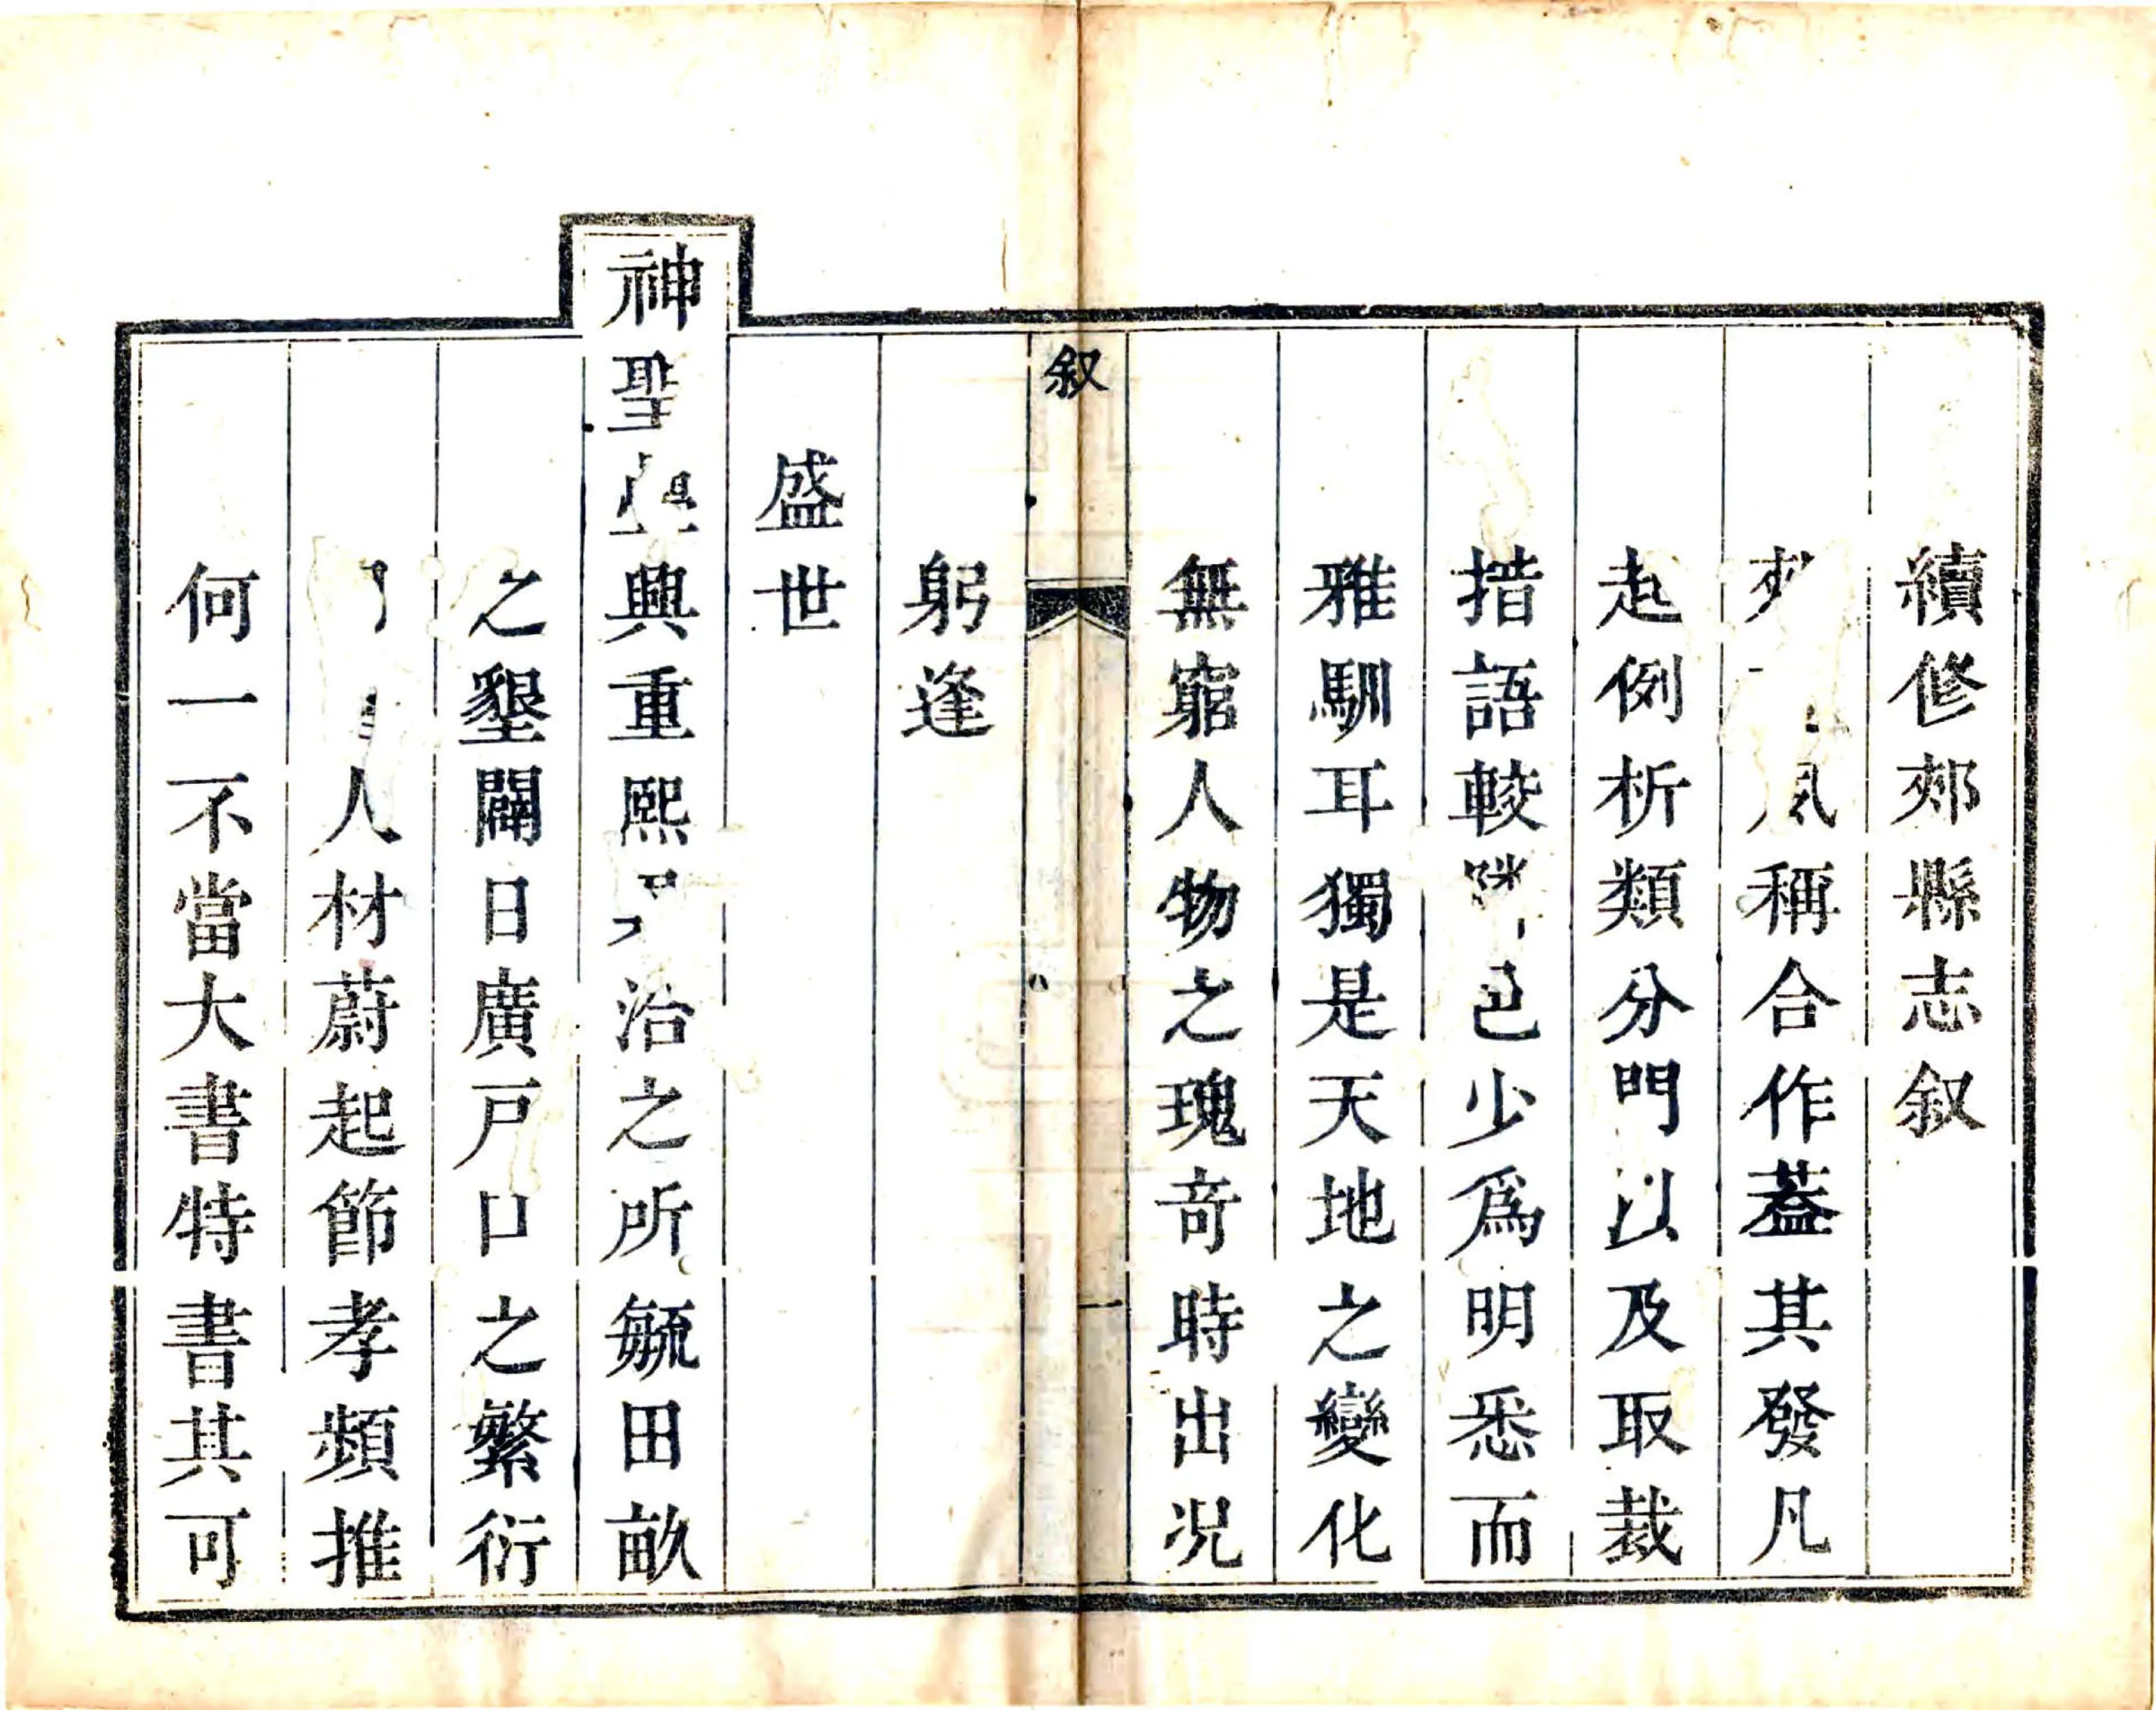 續修郟縣志叙
稱合作蓋其發凡
起例析類分門以及取裁
措語較他邑少爲明悉而
雅馴耳獨是天地之變化
無窮人物之瑰奇時出況
叙
一
躬逢
盛世
神聖興重熙治之所毓田畝
之墾闢日廣戸口之繁衍
人材蔚起節孝頻推
何一不當大書特書其可